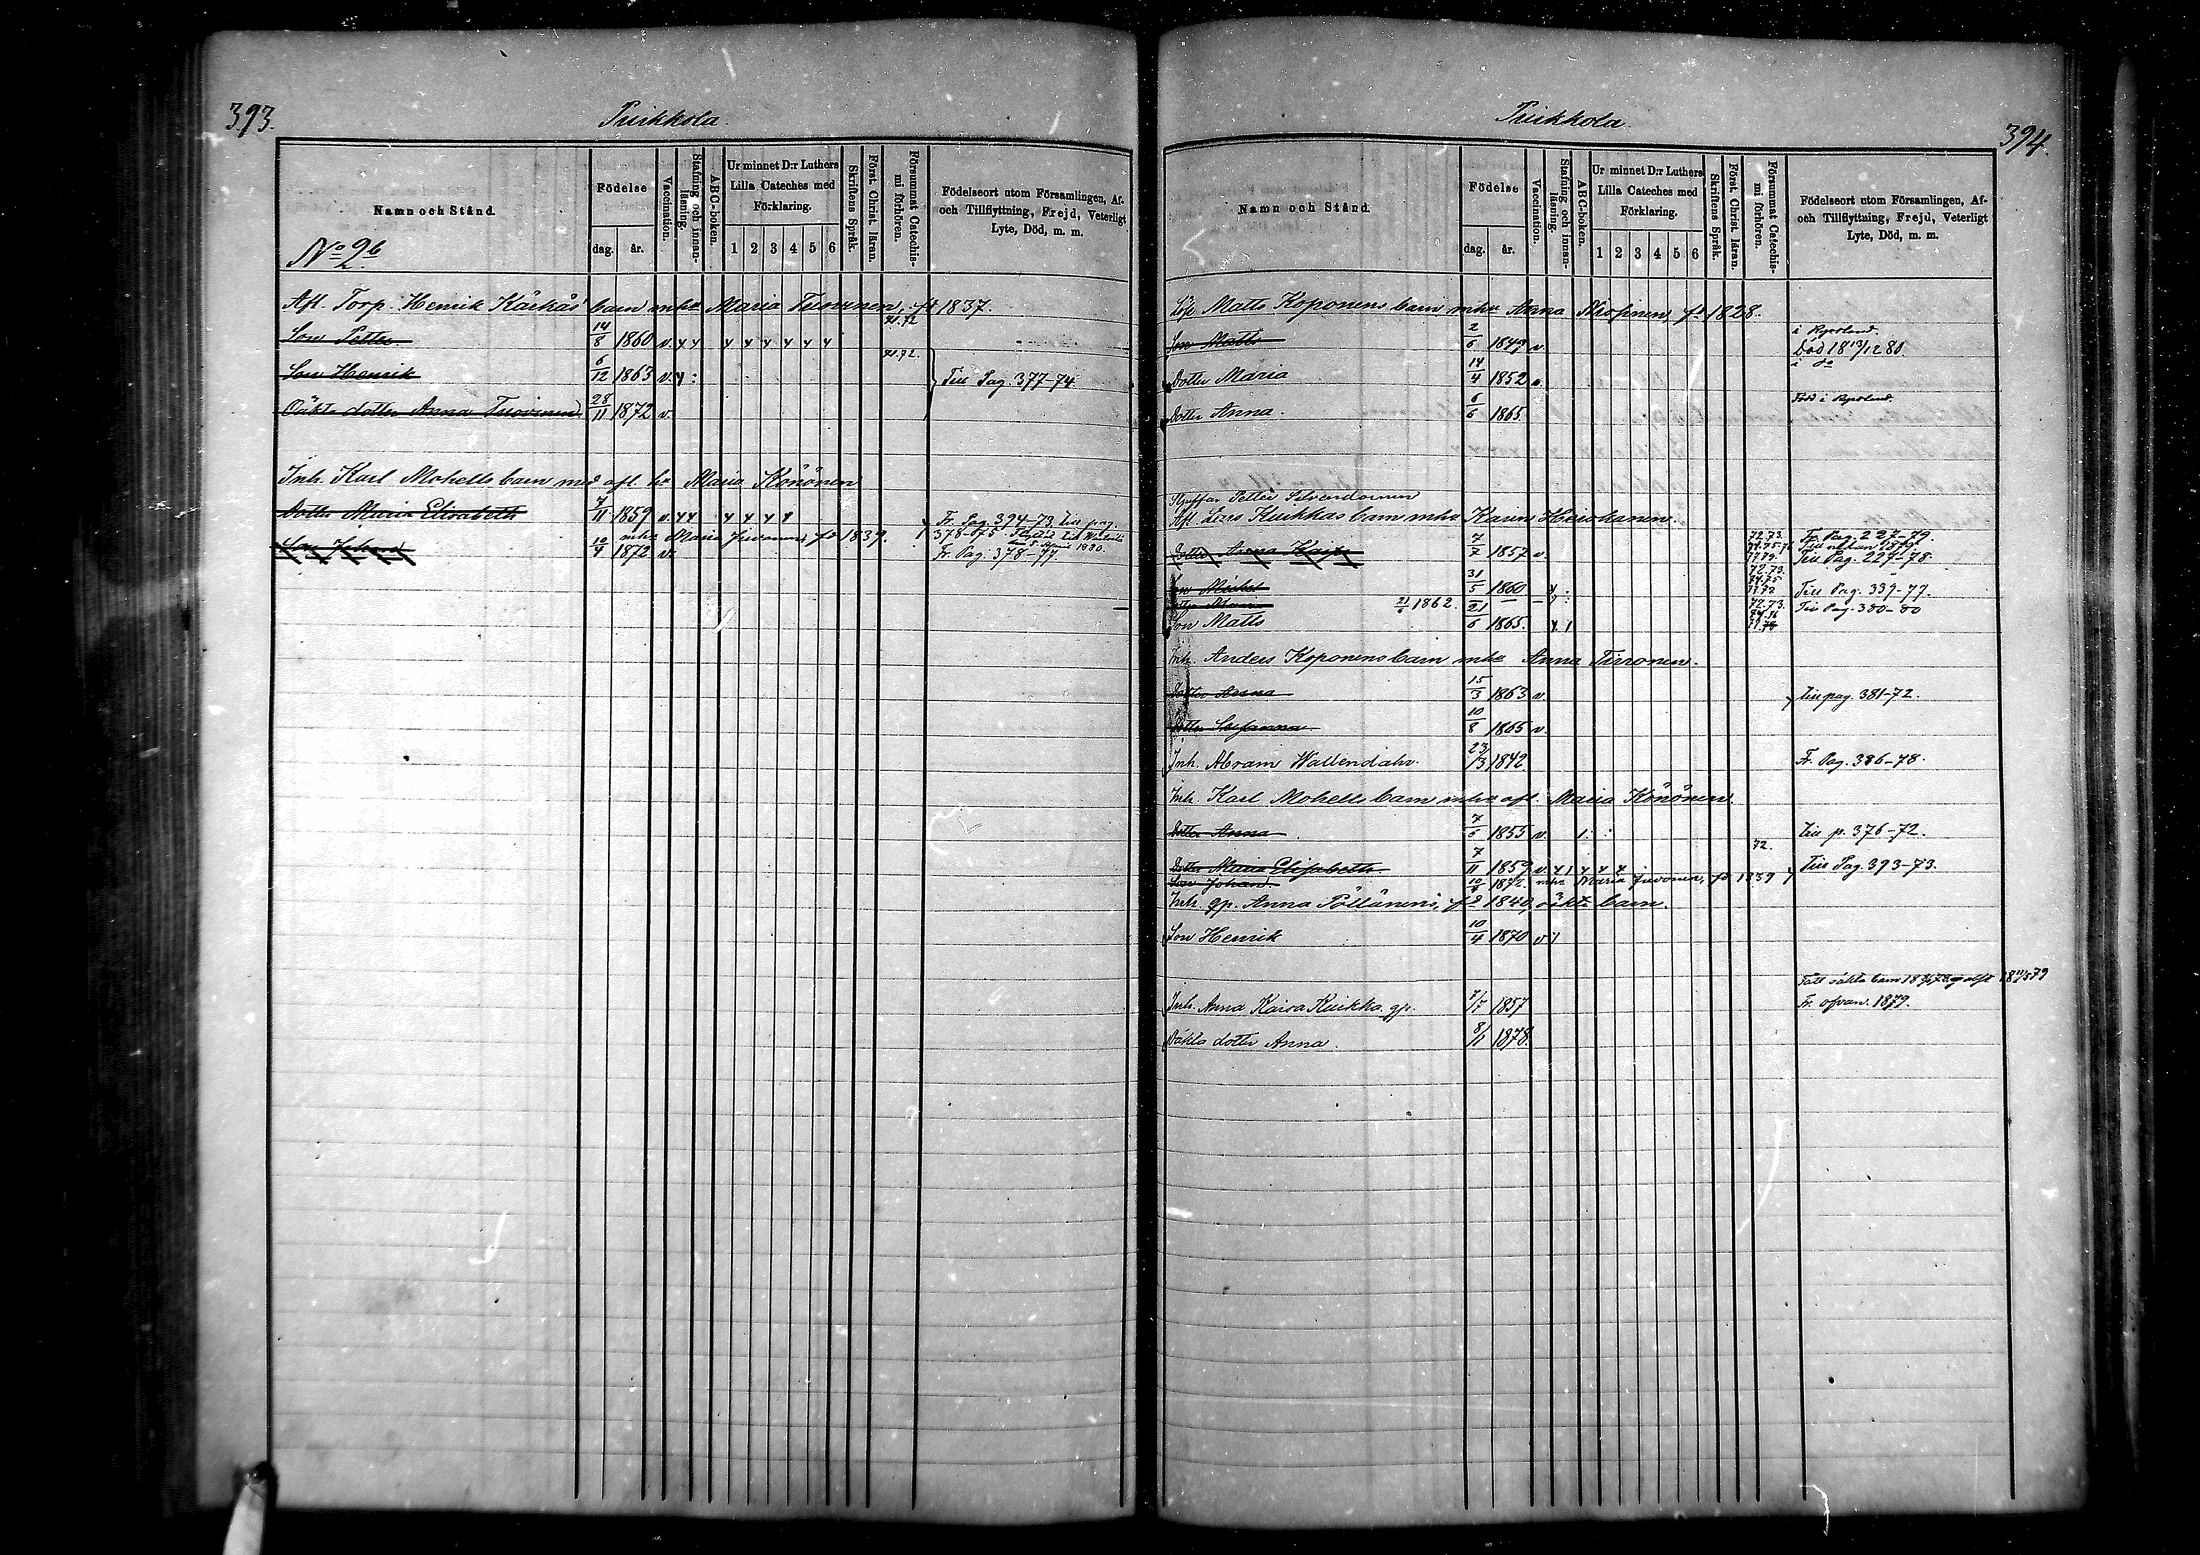 393.
Puikkola.
Namn och Stånd.
Födelse
dag. år.
Vaccination.
Stafning och innanläsning.
ABC-boken.
Ur minnet D:r Luthers
Lilla Cateches med
Förklaring.
1 2 3 4 5 6
Skriftens Språk.
Först. Christ. läran.
Försummat Catechismi förhören.
Födelseort utom Församlingen, Af-
och Tillflyttning, Frejd, Veterligt
Lyte, Död, m. m.
No 26
Afl. Torp. Henrik Kärkäs barn mhu Maria Tuovinen, fd 1837.
Son Petter 14/8 1860 v. 71.72
Son Henrik 6/12 1863 v. 71.72. Till Pag. 377-74
Oäkta dotter Anna Tuovinen 28/11 1872 v.
Inh. Karl Mohells barn med afl. hu Maria Könönen
Dotter Maria Elisabeth 7/11 1859 v. Fr. Pag. 394-73 Till pag.
mhu Maria Juvonen, fd 1839. 378-75
Son Johan 10/4 1872 v. Fr. Pag. 378-77.
Puikkola.
394.
Namn och Stånd.
Födelse
dag. år.
Vaccination.
Stafning och innanläsning.
ABC-boken.
Ur minnet D:r Luthers
Lilla Cateches med
Förklaring.
1 2 3 4 5 6
Skriftens Språk.
Först. Christ. läran.
Försummat Catechismi förhören.
Födelseort utom Församlingen, Af-
och Tillflyttning, Frejd, Veterligt
Lyte, Död, m. m.
Matts Koponens barn mhu Anna fd 1828.
i Ryssland.
Son Matts 2/6 1847 v. Död 18 13/12 80
i do
Dotter Maria 14/4 1852
Född i Ryssland.
Dotter Anna. 6/6 1865
Petter
Afl. Kuikkas barn mhu Karin Heiskanen.
Dotter Anna Kaisa 7/7 1857 v. 72.73. Fr. Pag. 227-79.
Till Pag. 227-78.
Son Michel 31/5 1860 Till Pag. 339-77.
21/6 1862. 72.73. Till Pag. 380-80
Son Matts 21/6 1865.
Inh. Anders Koponens barn mhu Anna Tirronen.
Dotter Anna 15/3 1863 v. till pag. 381-72.
Dotter Susanna 10/8 1865 v.
Inh. Abram Wallendahr 23/3 1842 Fr. Pag. 386-78.
Inh. Karl Mohells barn mhu afl. Maria Könönen
Dotter Anna 7/6 1855 v. till p. 376-72.
72.
Dotter Maria Elisabeth 7/11 1859 v. Till Pag. 393-73.
Son Johan. 10/4 1872. mhu Maria Juvonen, fd 1839
Inh. qp. Anna Pöllänens, fd 1840, oäkta barn.
Son Henrik 10/4 1870 v
Inh. Anna Kaisa Kuikka qp. 7/7 1857 Fr. ofvan. 1879.
Oäkta dotter Anna. 8/11 1878.